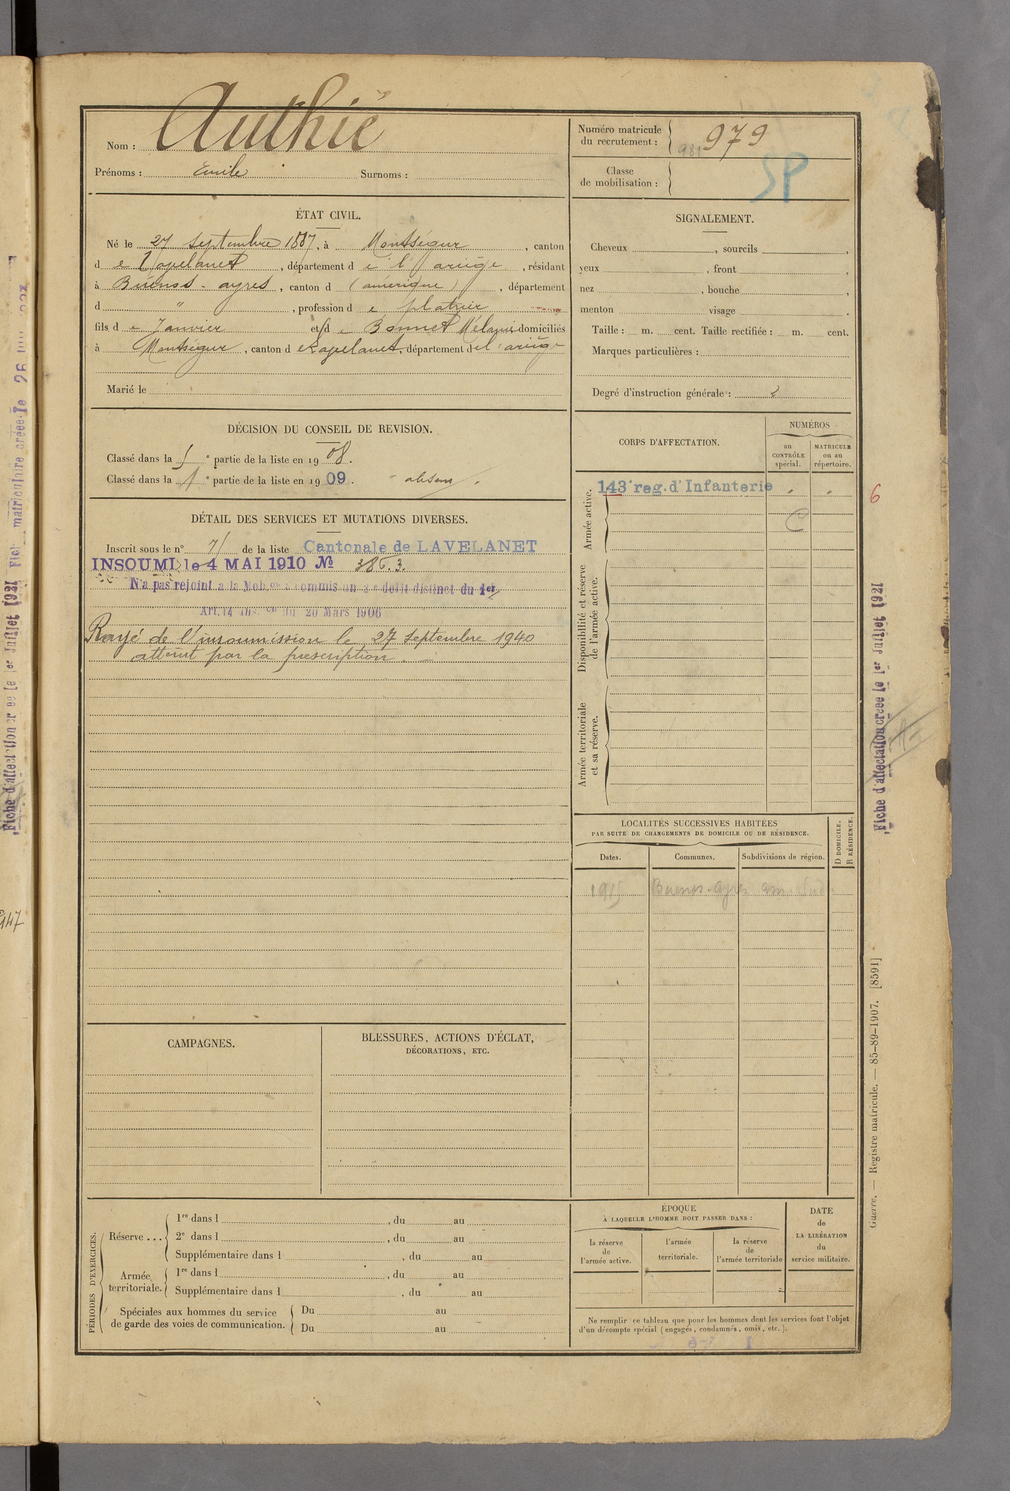 Nom : Authié
Prénoms : Emile Surnoms :
Numéro matricule du recrutement : 979
Classe de mobilisation :
SP
ÉTAT CIVIL.
Né le 27 septembre 1887, à Montségur, canton
de Lavelanet, département de l'ariège, résidant
à Buenos-ayres, canton d (amérique), département
d " , profession de platrier
fils de Janvier et d e Bonnet Mélanie domiciliés
à Montségur, canton de Lavelanet, département de l'ariège
Marié le
SIGNALEMENT.
Cheveux , sourcils ,
yeux , front ,
nez , bouche ,
menton visage .
Taille : m. cent. Taille rectifiée : m. cent.
Marques particulières :
Degré d'instruction générale :
DÉCISION DU CONSEIL DE REVISION.
Classé dans la 5e partie de la liste en 1908.
Classé dans la 1e partie de la liste en 1909. - absent.
CORPS D'AFFECTATION.
NUMÉROS
au CONTRÔLE spécial.
MATRICULE ou au répertoire.
Armée active.
143e reg. d'Infanterie
6
Disponibilité et réserve de l'armée active.
Armée territoriale et sa réserve.
DÉTAIL DES SERVICES ET MUTATIONS DIVERSES.
Inscrit sous le n° 71 de la liste Cantonale de LAVELANET
INSOUMI le 4 MAI 1910 № 386.3.
N'a pas rejoint à la Mob. a commis un délit distinct du 1er
Art. 14 20 Mars 1906
Rayé de l'insoumission le 27 septembre 1940
atteint par la prescription.
LOCALITÉS SUCCESSIVES HABITÉES
PAR SUITE DE CHANGEMENTS DE DOMICILE OU DE RÉSIDENCE.
Dates. Communes. Subdivisions de région.
D DOMICILE.
R RÉSIDENCE.
1915 Buenos-Ayres
CAMPAGNES.
BLESSURES, ACTIONS D'ÉCLAT,
DÉCORATIONS, ETC.
PÉRIODES D'EXERCICES.
Réserve ...
1re dans l , du au
2e dans l , du au
Supplémentaire dans l , du au
Armée territoriale.
1re dans l , du au
Supplémentaire dans l , du au
Spéciales aux hommes du service
de garde des voies de communication.
Du au
Du au
ÉPOQUE
À LAQUELLE L'HOMME DOIT PASSER DANS :
la réserve de l'armée active.
l'armée territoriale.
la réserve de l'armée territoriale
DATE de LA LIBÉRATION du service militaire.
Ne remplir ce tableau que pour les hommes dont les services font l'objet
d'un décompte spécial (engagés, condamnés, omis, etc.).
Fiche d'affectation créée le 1er Juillet 1921
Guerre. — Registre matricule. — 85-89-1907. [8591]
Fiche matriculaire créée le 26
Fiche d'affectation créée le 1er Juillet 1921